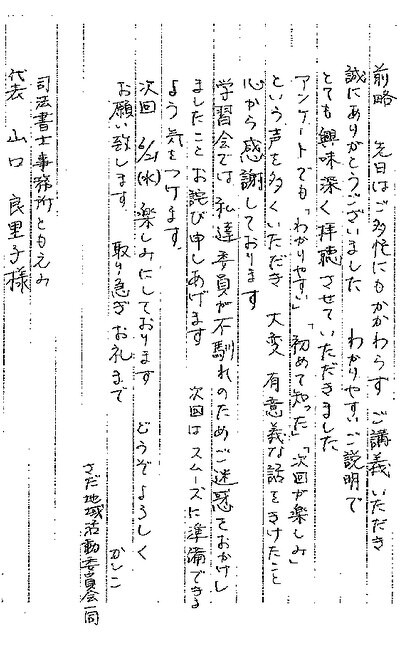 前略 先日はご多忙にもかかわらずご講義いただき
誠にありがとうございました わかりやすいご説明で
とても興味深く拝聴させていただきました
アンケートでも「わかりやすい」「初めて知った」「次回が楽しみ」
という声を多くいただき 大変有意義な話をきけたこと
心から感謝しております
学習会では私達委員が不馴れのためご迷惑をおかけし
ましたことお詫び申しあげます 次回はスムーズに準備できる
よう気をつけます
次回 6/21(水) 楽しみにしております どうぞよろしく
お願い致します 取り急ぎお礼まで
かしこ
さだ地域活動委員会一同
司法書士事務所ともえみ
代表 山口 良里子様